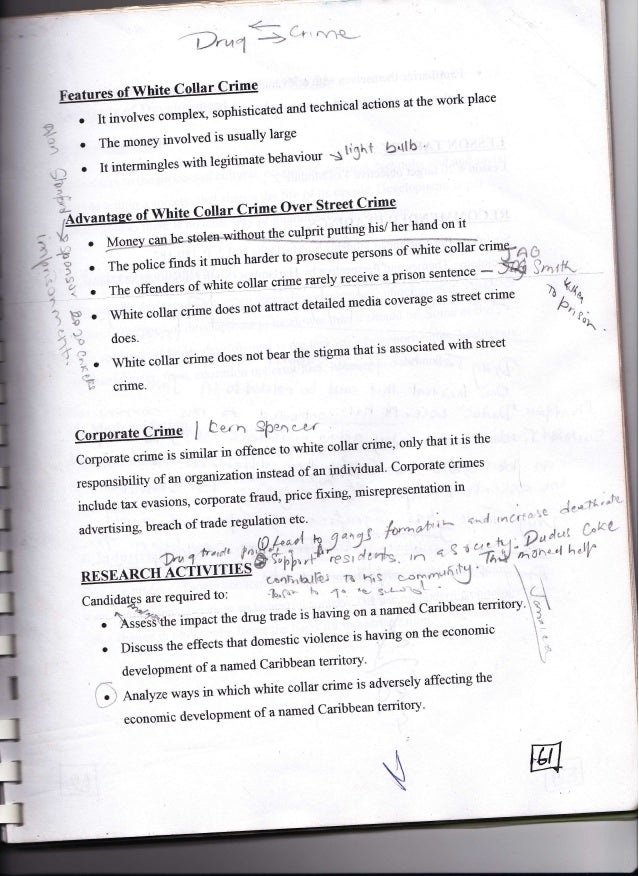 Drug ⇄ Crime
Features of White Collar Crime
• It involves complex, sophisticated and technical actions at the work place
• The money involved is usually large
• It intermingles with legitimate behaviour → light bulb
Advantage of White Collar Crime Over Street Crime
• Money can be stolen without the culprit putting his/ her hand on it
• The police finds it much harder to prosecute persons of white collar crime
• The offenders of white collar crime rarely receive a prison sentence — JAG Smith
to prison.
• White collar crime does not attract detailed media coverage as street crime
does.
• White collar crime does not bear the stigma that is associated with street
crime.
Stanford → sponsor 2020 crickets
imprisonment.
Corporate Crime / Kern Spencer
Corporate crime is similar in offence to white collar crime, only that it is the
responsibility of an organization instead of an individual. Corporate crimes
include tax evasions, corporate fraud, price fixing, misrepresentation in
advertising, breach of trade regulation etc.
① Lead to gangs formation and increase deathrate
Drug trade
② Support for residents in a society. Dudus Coke
contributes to his community. This money help
to go to school.
RESEARCH ACTIVITIES
Candidates are required to:
• Assess the impact the drug trade is having on a named Caribbean territory.
Jamaica
• Discuss the effects that domestic violence is having on the economic
development of a named Caribbean territory.
• Analyze ways in which white collar crime is adversely affecting the
economic development of a named Caribbean territory.
61